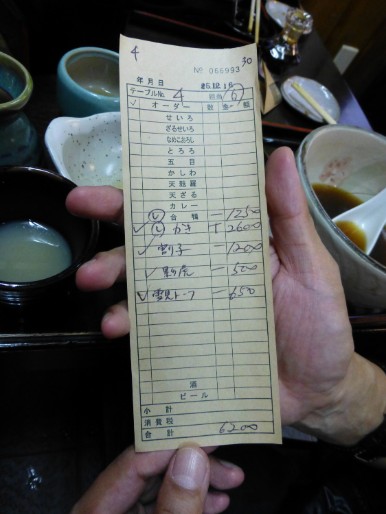 4 30
No 066993
年 月 日
テーブルNo. 4 6
✓ オーダー 数 金額
せいろ
ざるせいろ
なめこおろし
とろろ
五目
かしわ
天麩羅
天ざる
カレー
合鴨 一 1250
✓ かき 2600
✓ 割子 一 1200
✓ 一 500
✓ 雪見トーフ 一 650
酒
ビール
小計
消費税
合計 6200